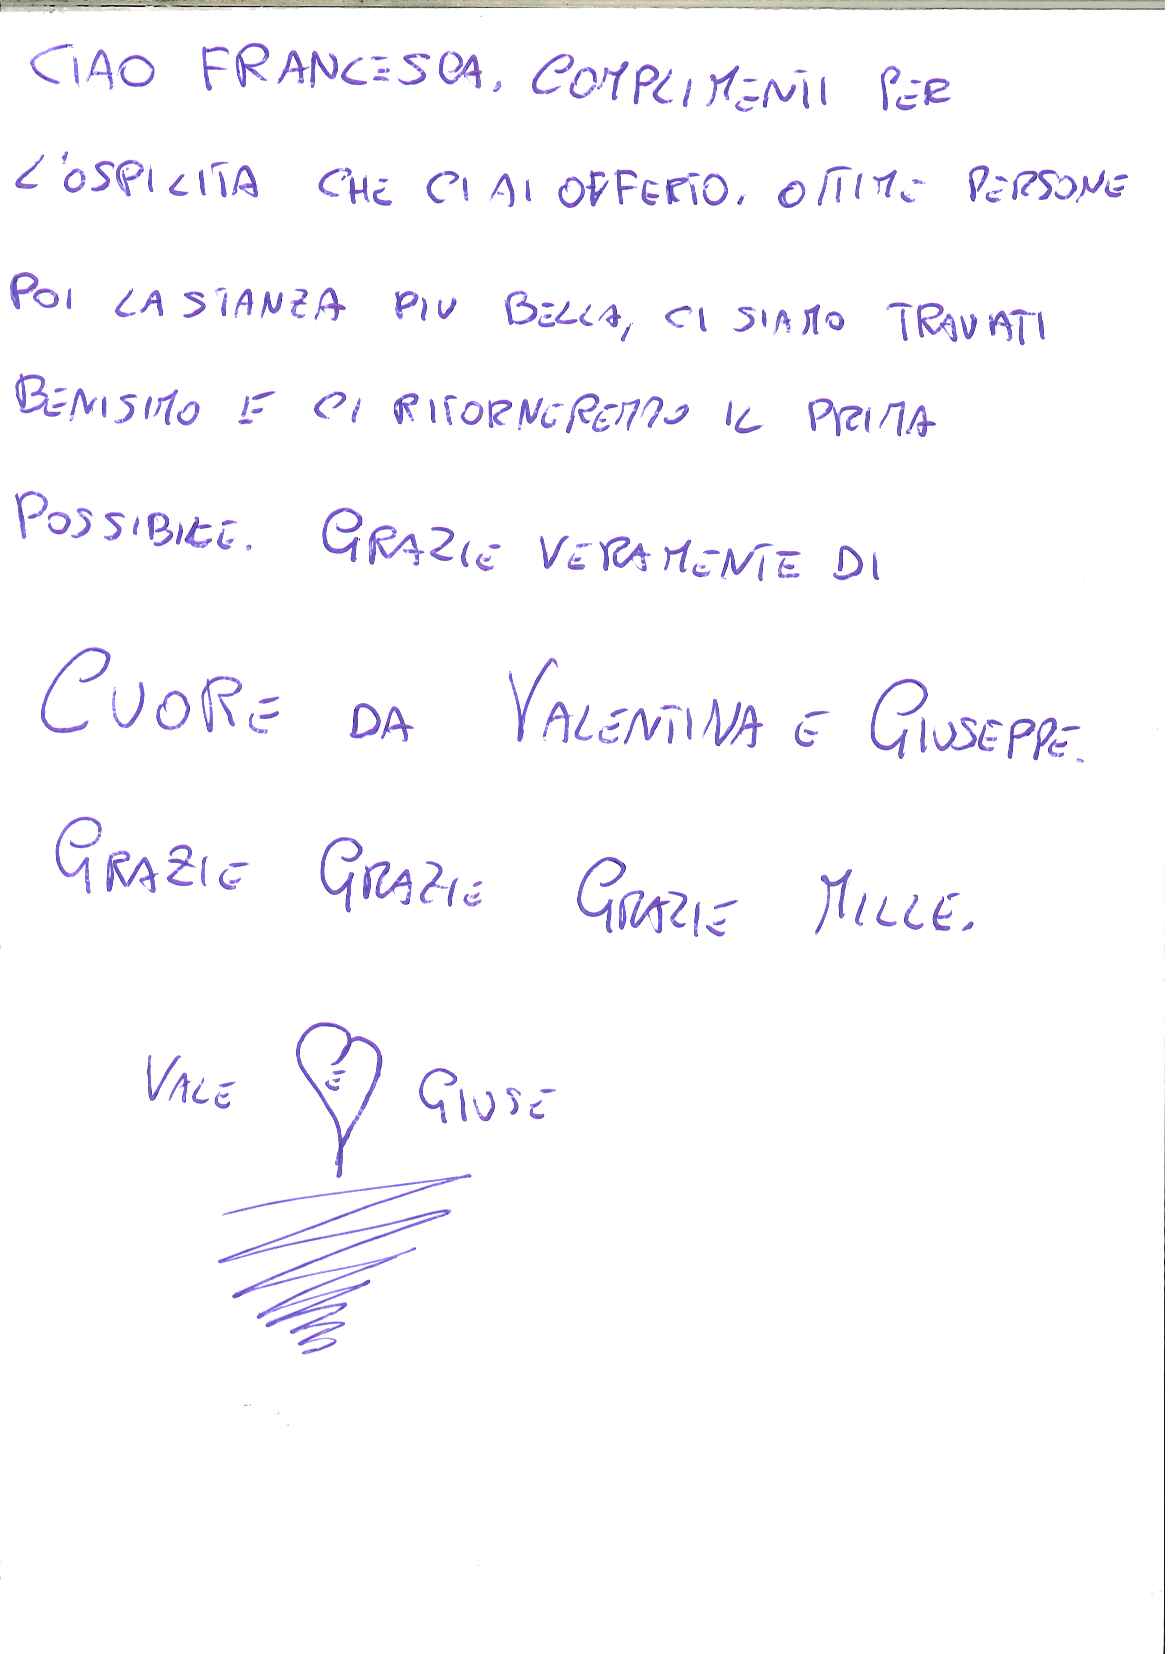 CIAO FRANCESCA, COMPLIMENTI PER
L'OSPILITA CHE CI AI OFFERTO. OTTIME PERSONE
POI LA STANZA PIU BELLA, CI SIAMO TRAVATI
BENISIMO E CI RITORNEREMMO IL PRIMA
POSSIBILE. GRAZIE VERAMENTE DI
CUORE DA VALENTINA E GIUSEPPE.
GRAZIE GRAZIE GRAZIE MILLE.
VALE E GIUSE